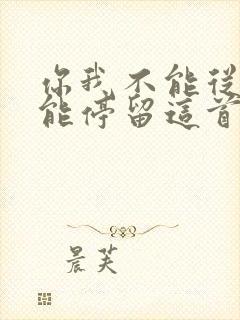 你我不能從
能停留這首
晨芙